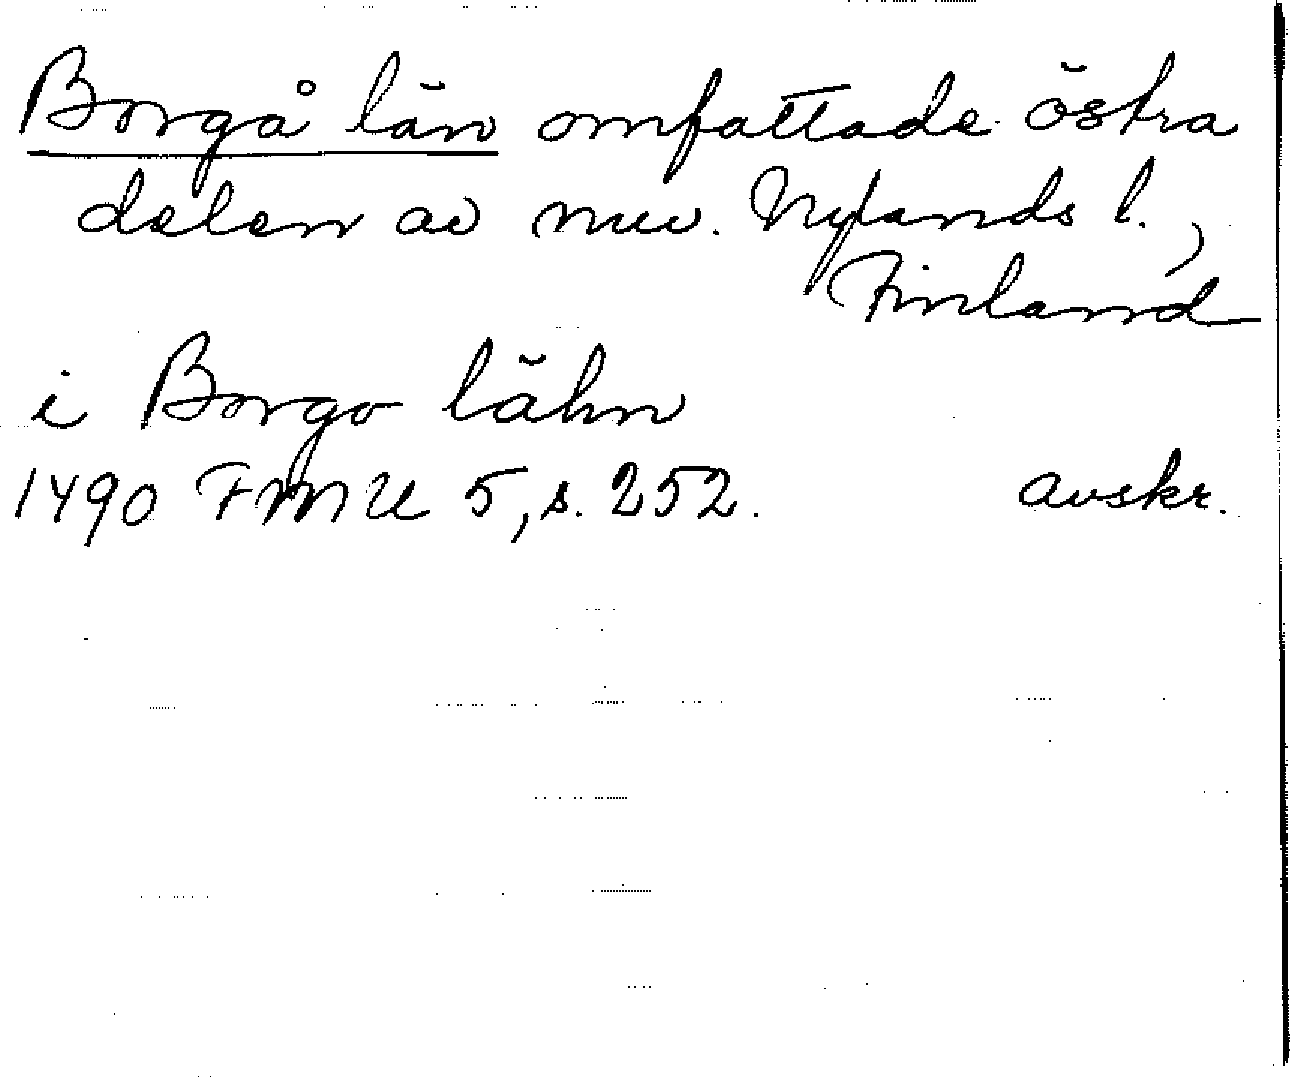 Borgå län omfattade östra
delen av nuv. Nylands l.,
Finland
i Borgo lähn
1490 FMU 5, s. 252. avskr.